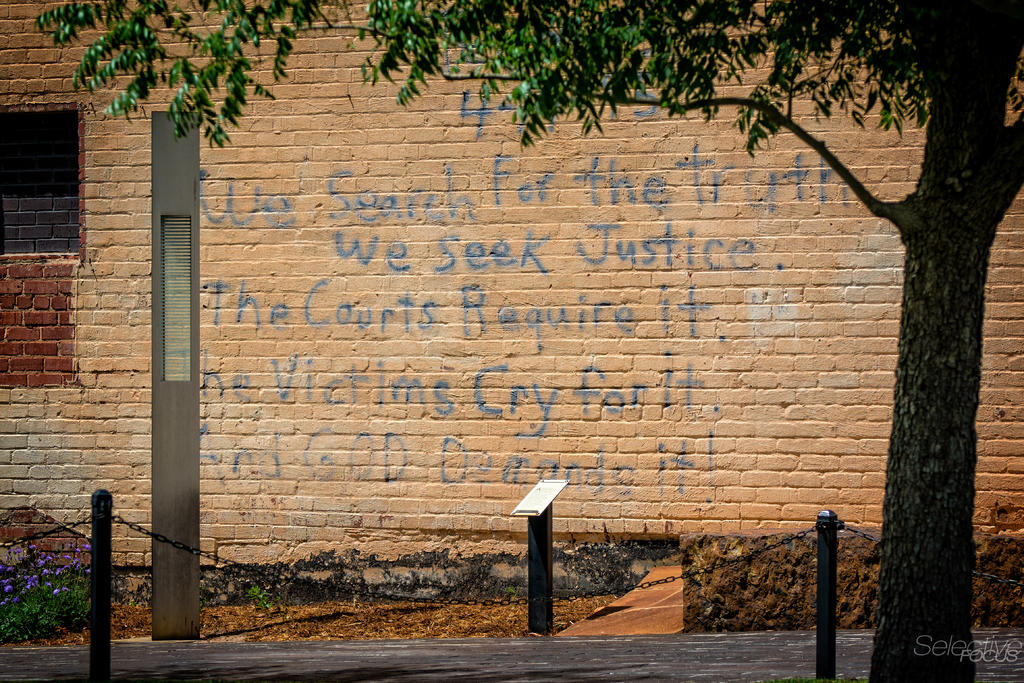 We Search For the truth
We Seek Justice.
The Courts Require it.
The Victims Cry for it.
And GOD Demands it!
Selective
FOCUS